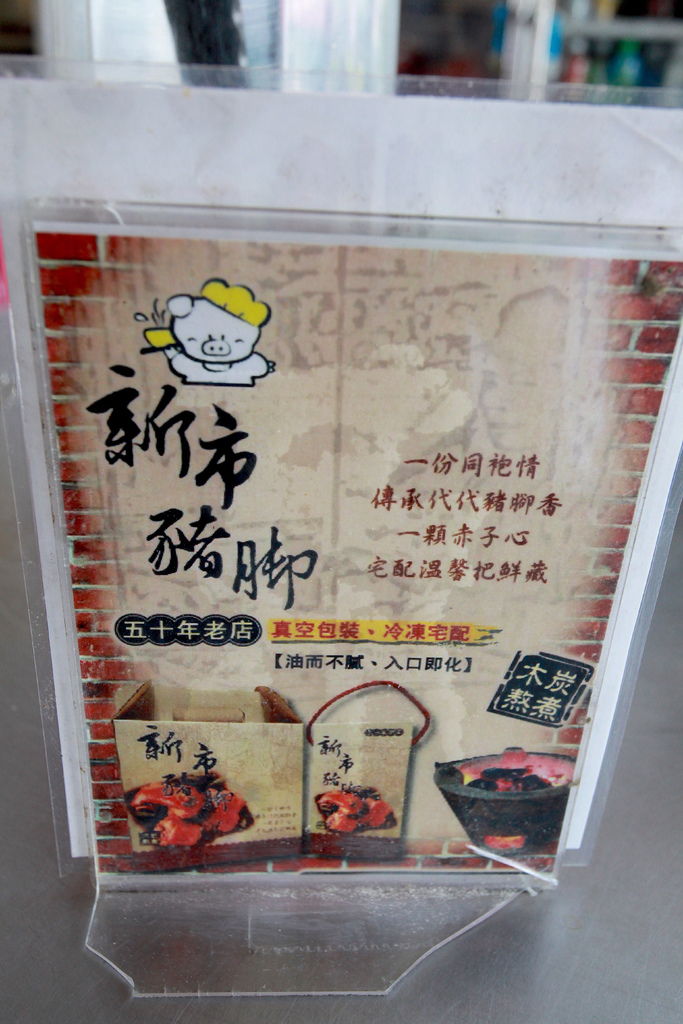 新市
豬腳
一份同袍情
傳承代代豬腳香
一顆赤子心
宅配溫馨把鮮藏
五十年老店 真空包裝、冷凍宅配
【油而不膩、入口即化】
木炭
熬煮
新市
豬腳
新市
豬腳